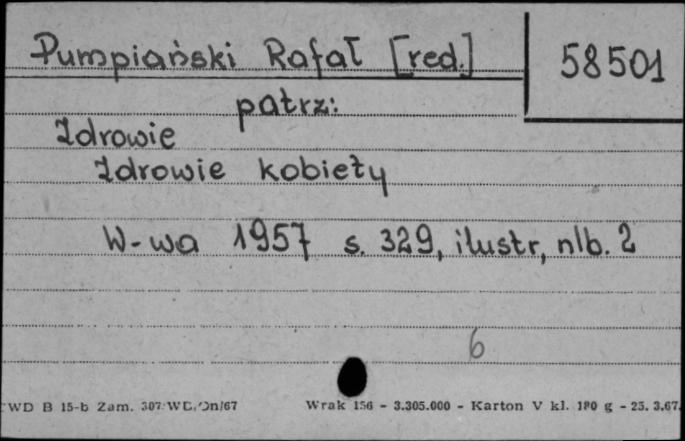 Pumpiański Rafał [red.]
58501
patrz:
Zdrowie
Zdrowie kobiety
W-wa 1957 s. 329, ilustr, nlb. 2
6
WD B 15-b Zam. 307/WD/On/67
Wrak 156 - 3.305.000 - Karton V kl. 180 g - 25. 3.67.